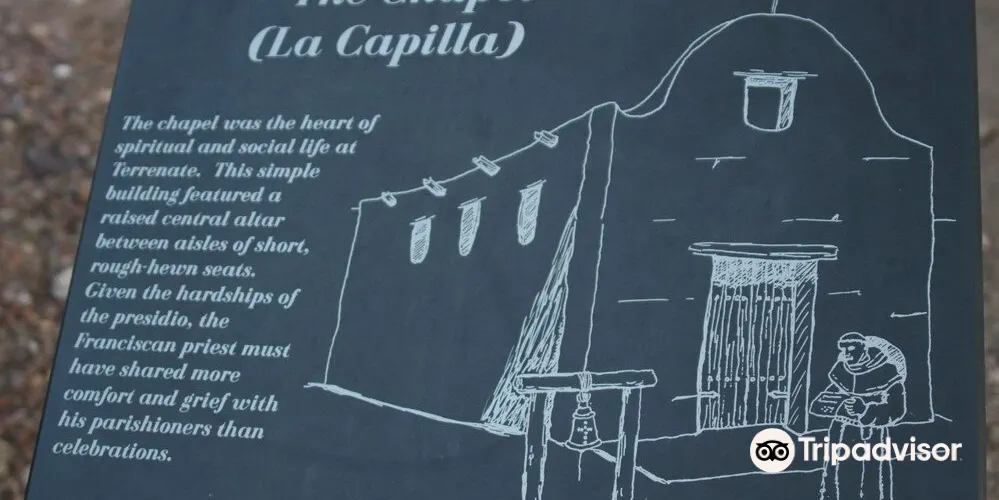 The Chapel
(La Capilla)
The chapel was the heart of
spiritual and social life at
Terrenate. This simple
building featured a
raised central altar
between aisles of short,
rough-hewn seats.
Given the hardships of
the presidio, the
Franciscan priest must
have shared more
comfort and grief with
his parishioners than
celebrations.
Tripadvisor